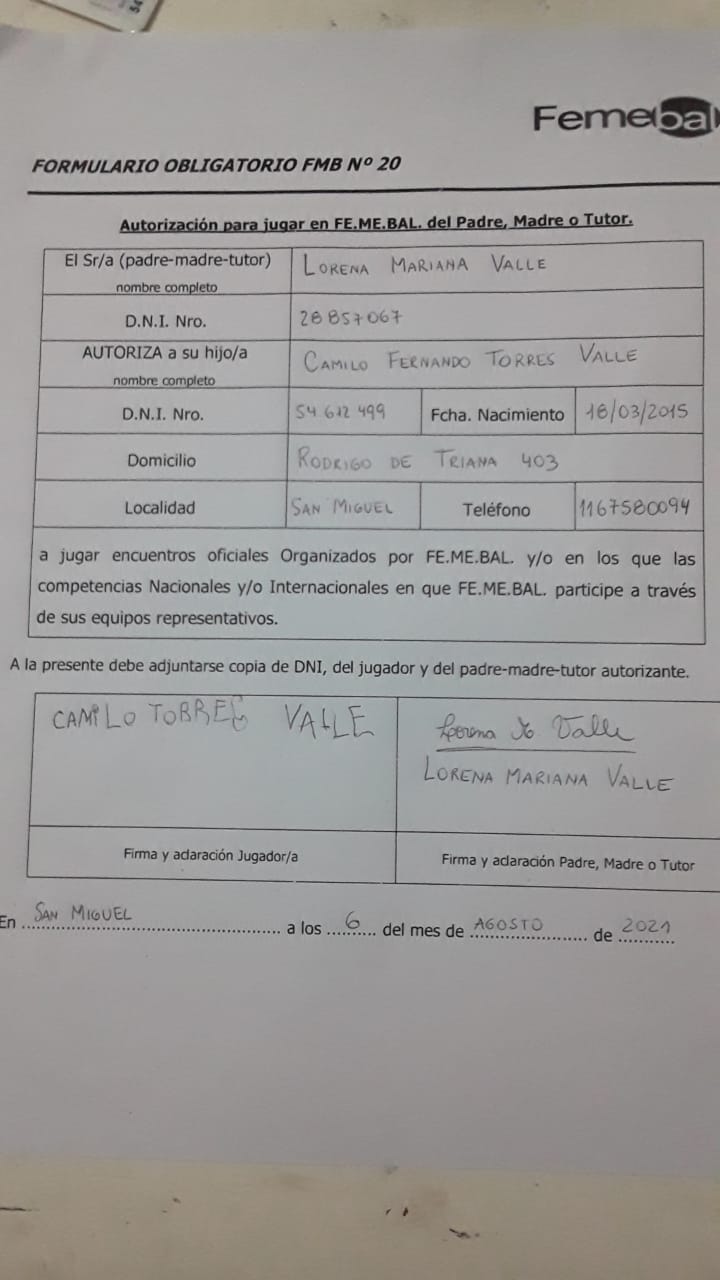 Femebal
FORMULARIO OBLIGATORIO FMB Nº 20
Autorización para jugar en FE.ME.BAL. del Padre, Madre o Tutor.
El Sr/a (padre-madre-tutor) LORENA MARIANA VALLE
nombre completo
D.N.I. Nro. 28857067
AUTORIZA a su hijo/a CAMILO FERNANDO TORRES VALLE
nombre completo
D.N.I. Nro. 54 612 499 Fcha. Nacimiento 18/03/2015
Domicilio RODRIGO DE TRIANA 403
Localidad SAN MIGUEL Teléfono 1167580094
a jugar encuentros oficiales Organizados por FE.ME.BAL. y/o en los que las
competencias Nacionales y/o Internacionales en que FE.ME.BAL. participe a través
de sus equipos representativos.
A la presente debe adjuntarse copia de DNI, del jugador y del padre-madre-tutor autorizante.
CAMILO TORRES VALLE
Lorena M Valle
LORENA MARIANA VALLE
Firma y aclaración Jugador/a
Firma y aclaración Padre, Madre o Tutor
En SAN MIGUEL a los 6 del mes de AGOSTO de 2021